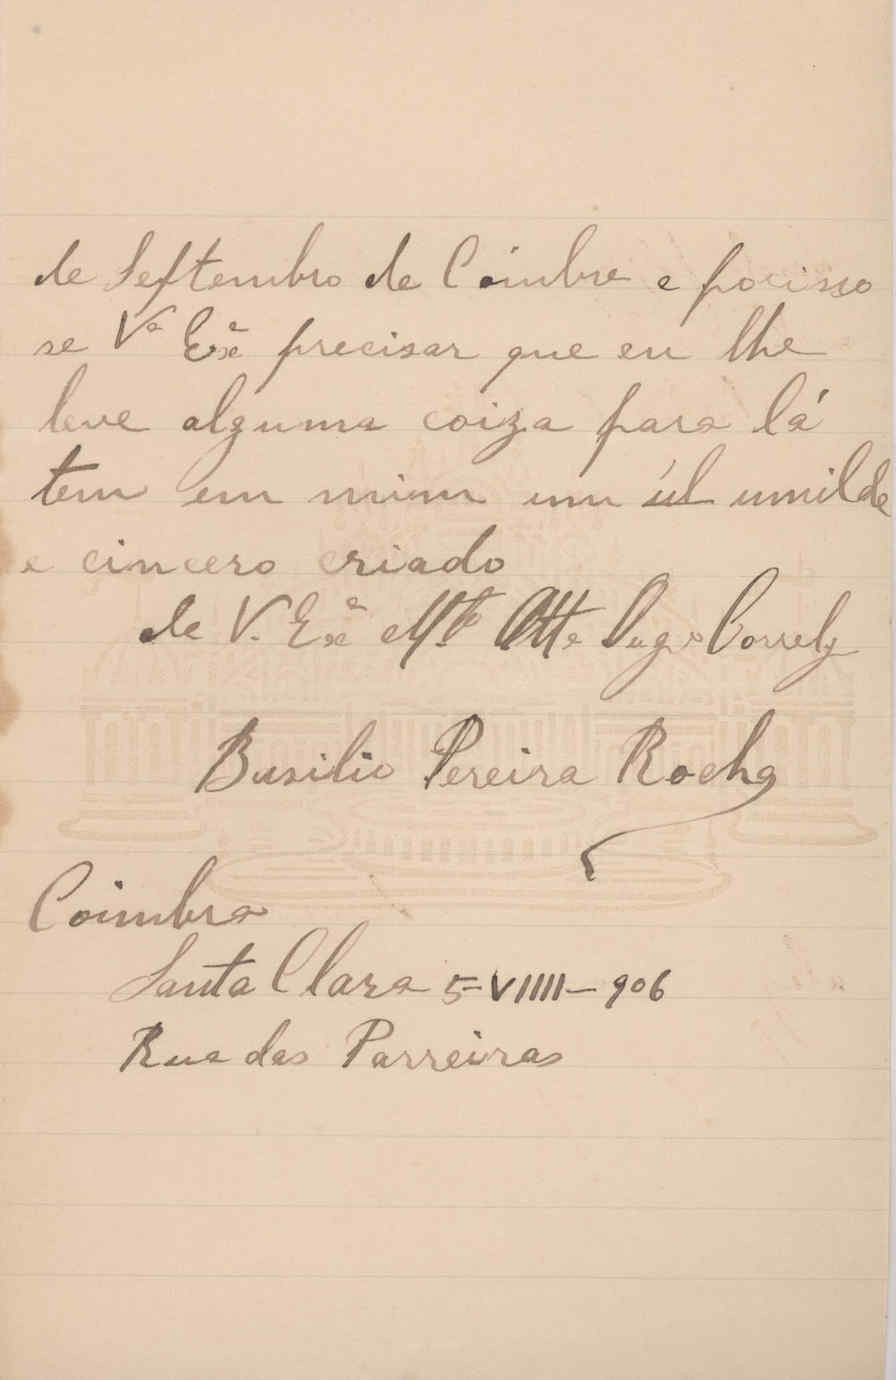 de Septembro de Coimbra e porisso
se Vª Exª precisar que eu lhe
leve alguma coiza para lá
tem em mim um úl umilde
e cincero criado
de V. Exª Mt.º Atte
Busilio Pereira Rocha
Coimbra
Santa Clara 5-VIIII-906
Rua das Parreiras